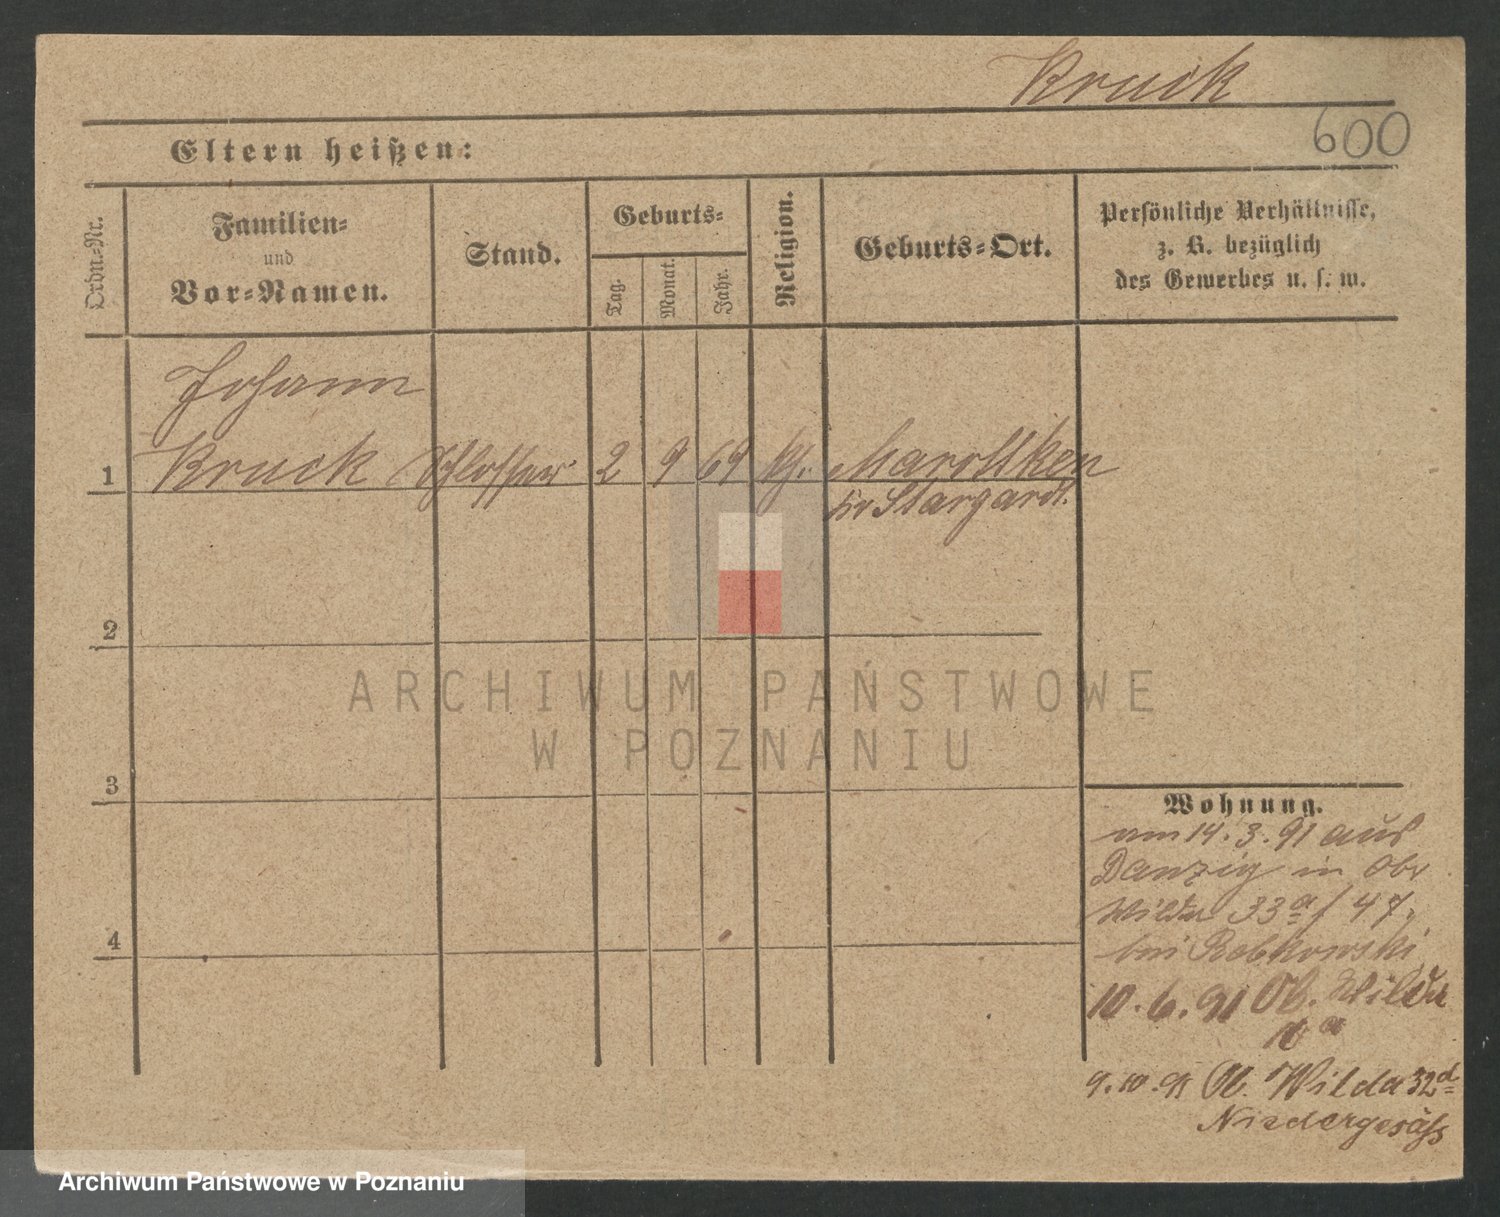 Kruck
600
Eltern heißen:
Ordn.-Nr.
Familien-
und
Vor-Namen.
Stand.
Geburts-
Tag.
Monat.
Jahr.
Religion.
Geburts-Ort.
Persönliche Verhältnisse,
z. B. bezüglich
des Gewerbes u. s. w.
Johann
1 Kruck Schlosser 2 9 69 Marottken
Kr Stargardt.
2
ARCHIWUM PAŃSTWOWE
W POZNANIU
3
Wohnung.
am 14. 3. 91 aus
Danzig in Obr
Wilda 33a/47,
bei Rebkowski
4
10. 6. 91 Ob. Wilda
9. 10. 91 Ob. Wilda 32d
Niedergesäss
Archiwum Państwowe w Poznaniu